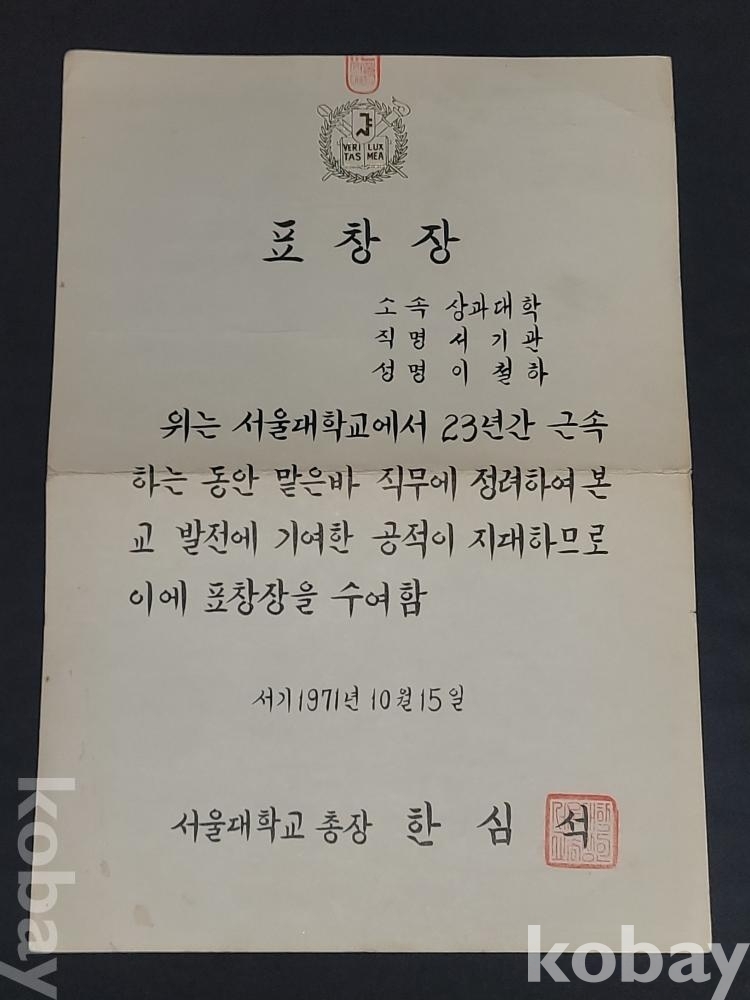 VERI LUX
TAS MEA
표창장
소속 상과대학
직명 서기관
성명 이철하
위는 서울대학교에서 23년간 근속
하는 동안 맡은바 직무에 정려하여 본
교 발전에 기여한 공적이 지대하므로
이에 표창장을 수여함
서기1971년 10월15일
서울대학교 총장 한심석
kobay
kobay